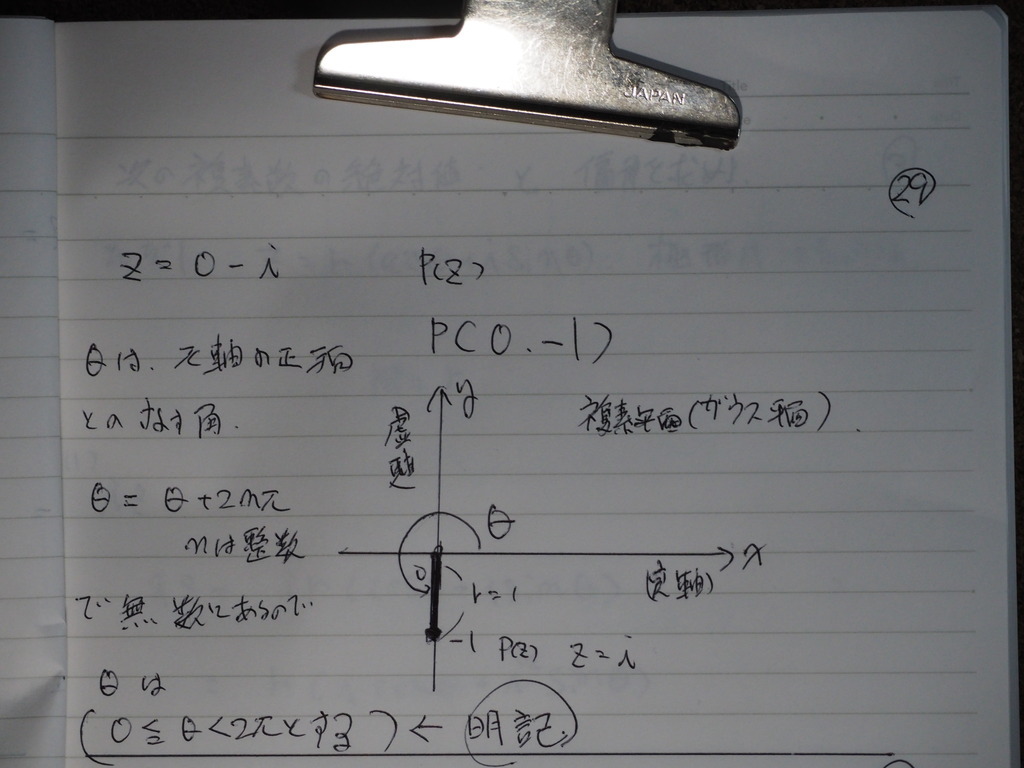 JAPAN
29
z = 0 - i
P(z)
P(0, -1)
θは、x軸の正方向
とのなす角.
y
虚軸
複素平面(ガウス平面).
θ = θ + 2nπ
nは整数
θ
x
0
r = 1
(実軸)
で無数にあるので
-1
P(z) z = i
θは
(0 ≦ θ < 2πとする) ← 明記